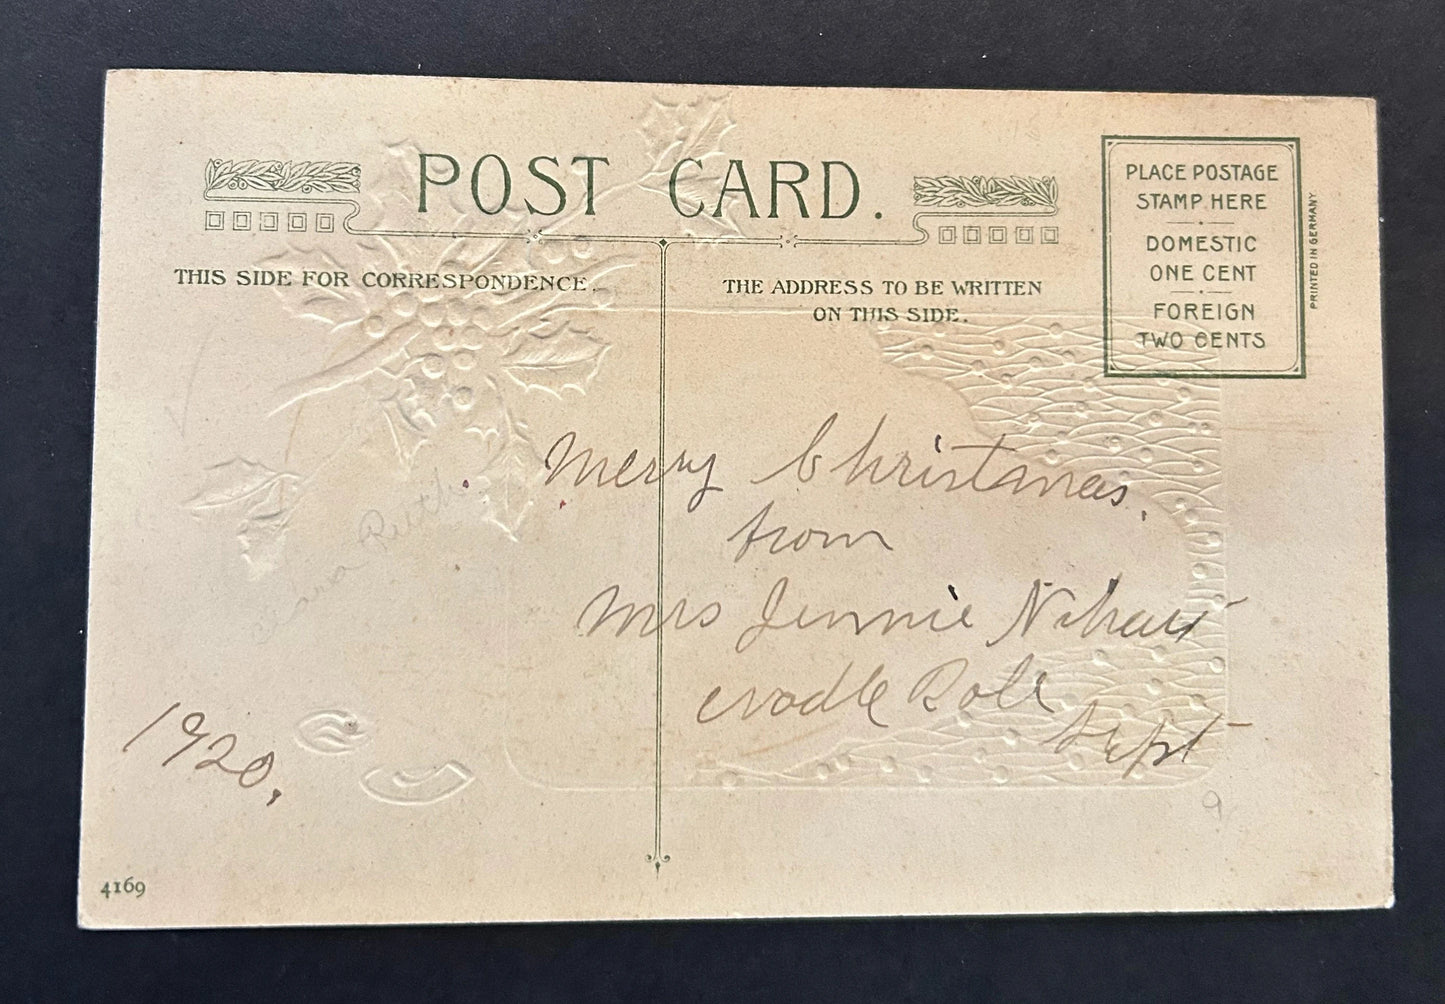 POST CARD.
THIS SIDE FOR CORRESPONDENCE.
THE ADDRESS TO BE WRITTEN
ON THIS SIDE.
PLACE POSTAGE
STAMP HERE
DOMESTIC
ONE CENT
FOREIGN
TWO CENTS
PRINTED IN GERMANY
Merry Christmas,
from
Mrs Jennie
cradle Roll
Supt
Ruth
1920.
9
4169